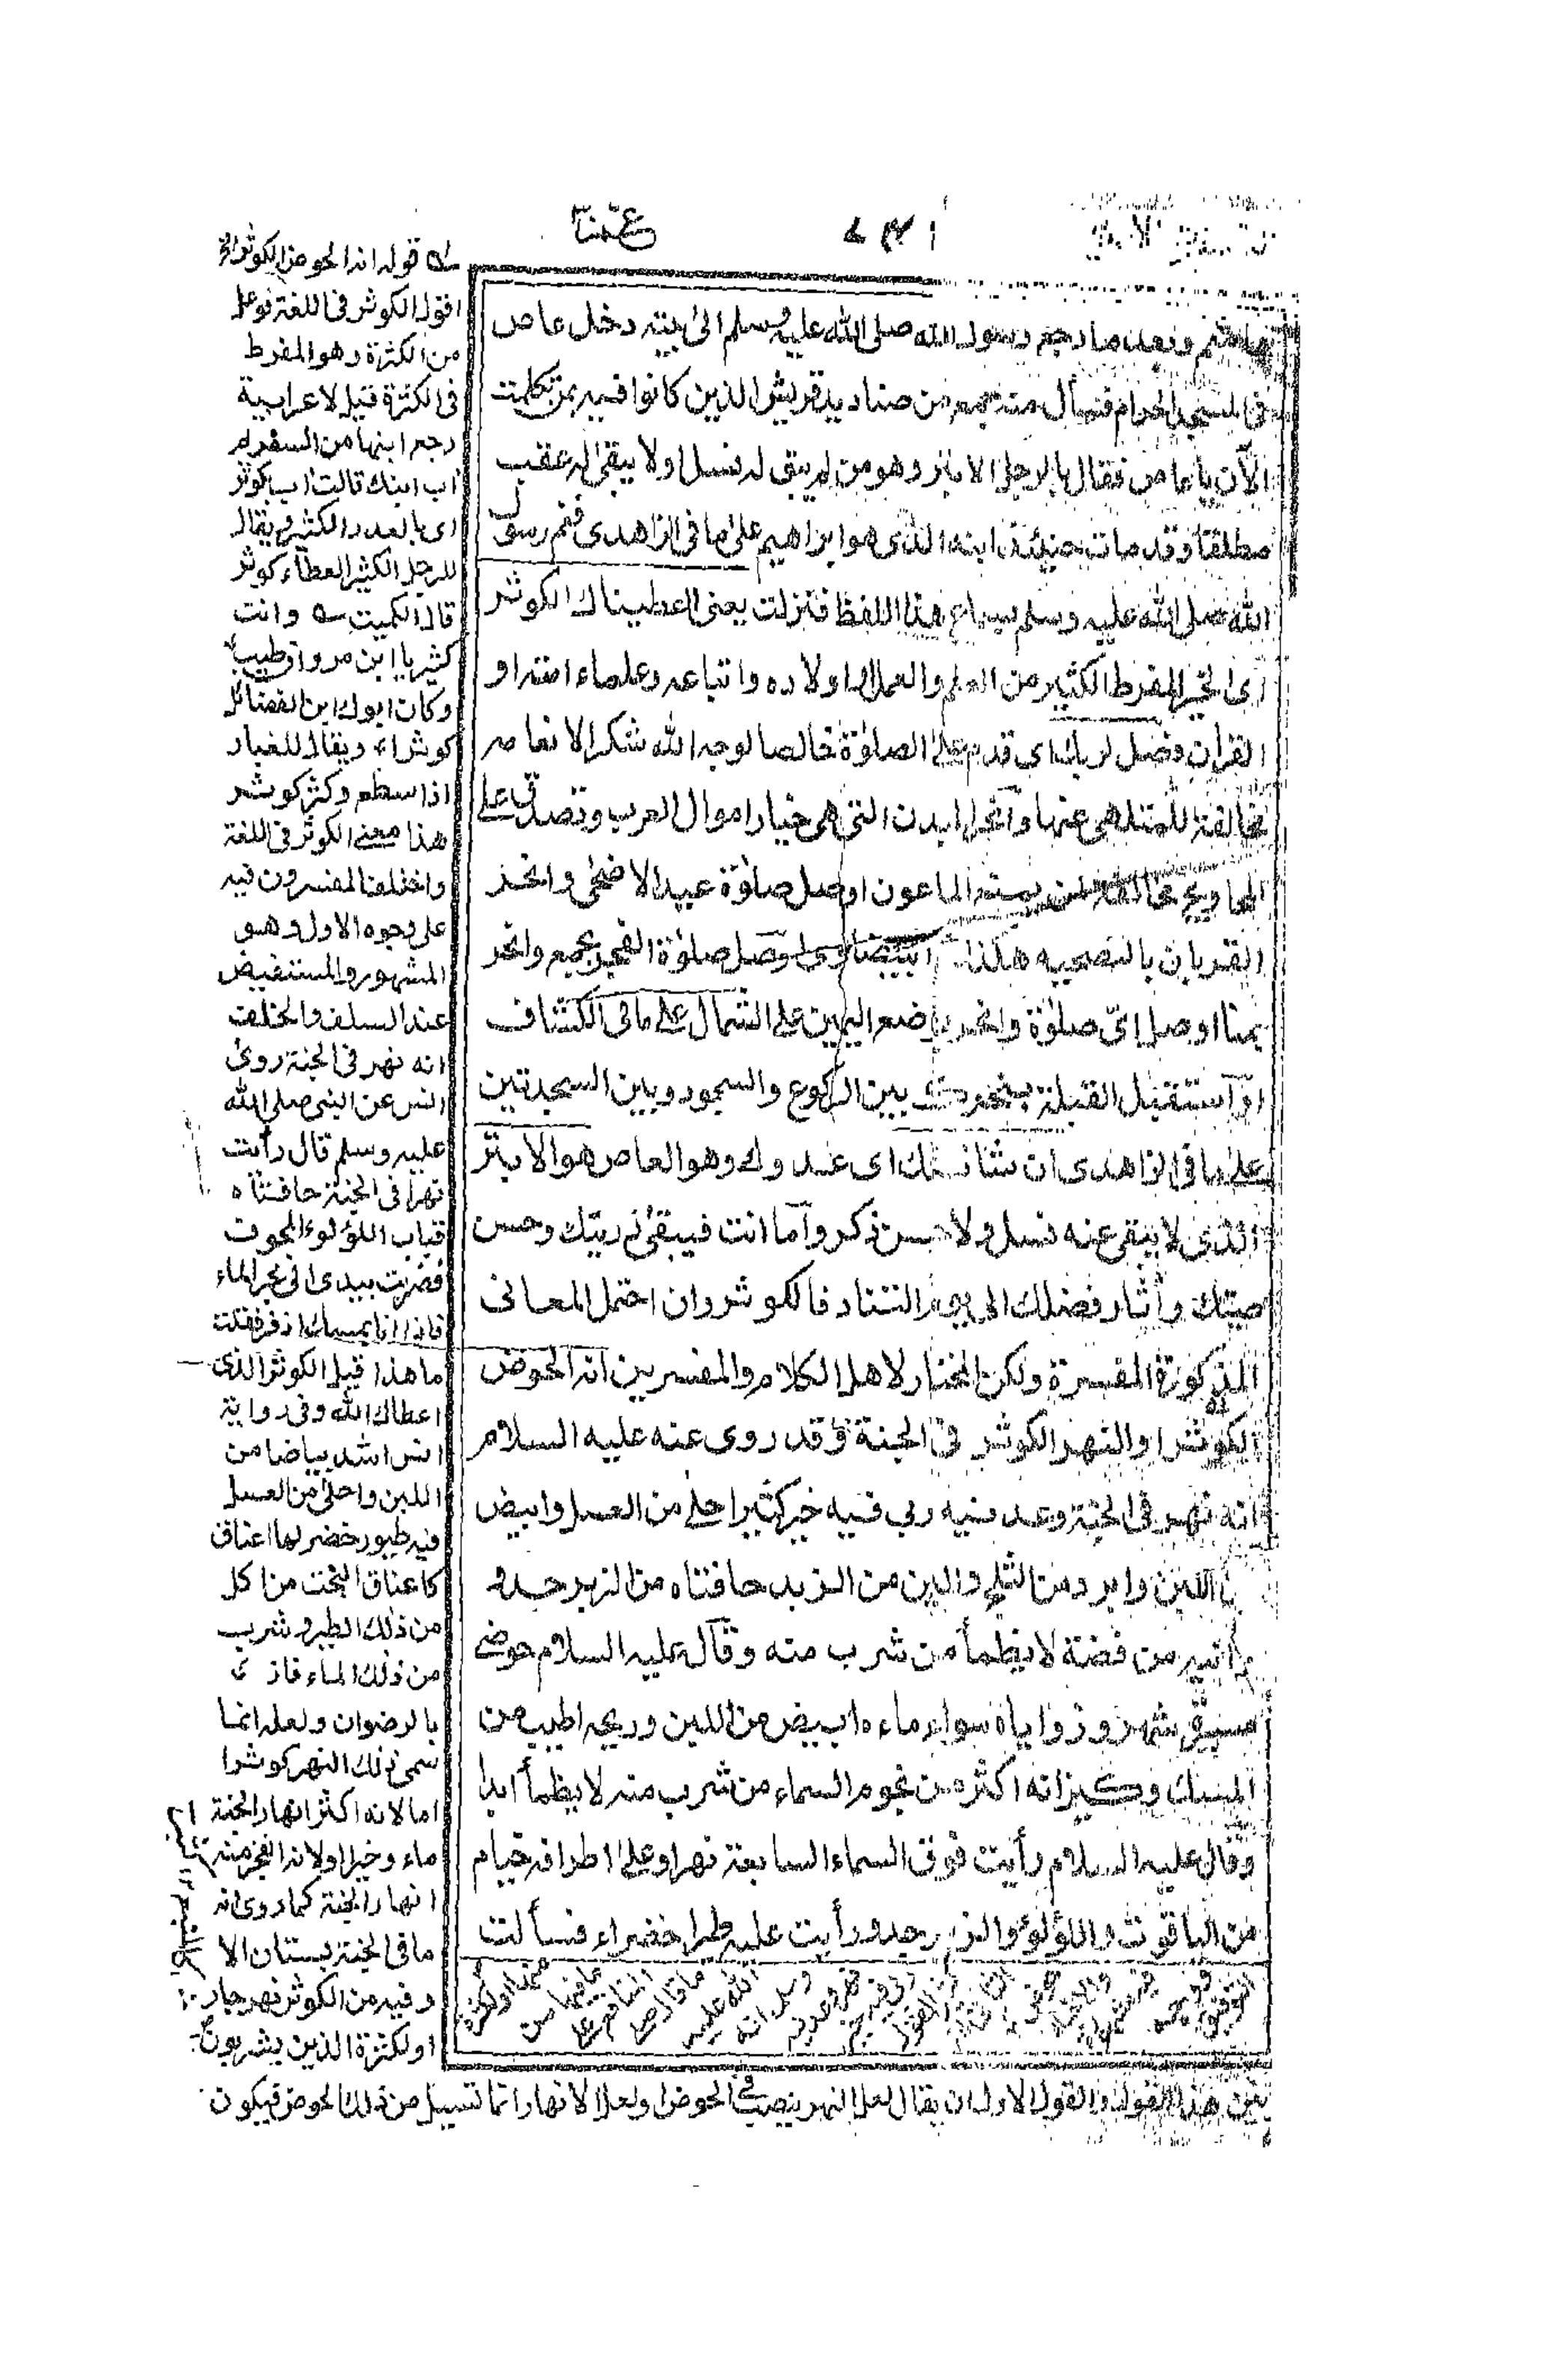 عمّ
وبعد ما رجع رسول الله صلى الله عليه وسلم الى بيته دخل عاص
فى المسجد الحرام فسأل منه جميع من صناديد قريش الذين كانوا فيه بمن تكلمت
الآن يا عاص فقال بالرجل الابتر وهو من لم يبق له نسل ولا يبقى له عقب
مطلقا وقد مات حينئذ ابنه الذى هو ابراهيم على ما فى الزاهدى فغم رسول
الله صلى الله عليه وسلم بسماع هذا اللفظ فنزلت يعنى اعطيناك الكوثر
اى الخير المفرط الكثير من العلم والعمل او اولاده واتباعه وعلماء امته او
القرآن فصل لربك اى قدم على الصلوٰة خالصا لوجه الله شكرا لانعامه
مخالفة للمتلهى عنها وانحر البدن التى هى خيار اموال العرب وتصدق على
المحاويج مخالفة لمن يمنع الماعون او صل صلوٰة عيد الاضحى وانحر
القربان بالتضحيه هكذا البيضاوى او صل صلوٰة الفجر بجمع وانحر
بمنا او صل اىّ صلوٰة وانحر بوضع اليمين على الشمال على ما فى الكشاف
او استقبل القبلة بنحرك بين الركوع والسجود وبين السجدتين
على ما فى الزاهدى ان شانئك اى عدوك وهو العاص هو الابتر
الذى لا يبقى عنه نسل ولا حسن ذكر وآما انت فيبقى ذريتك وحسن
صيتك وآثار فضلك الى يوم التناد فالكوثر وان احتمل المعانى
المذكورة المفسرة ولكن المختار لاهل الكلام والمفسرين انه الحوض
الكوثر او النهر الكوثر فى الجنة وقد روى عنه عليه السلام
انه نهر فى الجنة وعدنيه ربى فيه خير كثير احلى من العسل وابيض
من اللبن وابرد من الثلج والين من الزبد حافتاه من الزبرجد و
اوانيه من فضة لا يظمأ من شرب منه وقال عليه السلام حوضى
مسيرة شهر وزواياه سواء ماءه ابيض من اللبن وريحه اطيب من
المسك وكيزانه اكثر من نجوم السماء من شرب منه لا يظمأ ابدا
وقال عليه السلام رأيت فوق السماء السابعة نهرا وعلى اطرافه خيام
من الياقوت واللؤلؤ والزبرجد ورأيت عليه طيرا خضراء فسألت
قوله انه الحوض الكوثر الخ
اقول الكوثر فى اللغة فوعل
من الكثرة وهو المفرط
فى الكثرة قيل لاعرابية
رجع ابنها من السفر لم
آب ابنك قالت آب بكوثر
اى بالعدد الكثير ويقال
للرجل الكثير العطاء كوثر
قال الكميت وانت
كثير يا ابن مروان طيب
وكان ابوك ابن الفضائل
كوثرا، ويقال للغبار
اذا سطع وكثر كوثر
هذا معنى الكوثر فى اللغة
واختلف المفسرون فيه
على وجوه الاول وهو
المشهور والمستفيض
عند السلف والخلف
انه نهر فى الجنة روى
انس عن النبى صلى الله
عليه وسلم قال رأيت
نهرا فى الجنة حافتاه
قباب اللؤلوء المجوف
فضربت بيدى الى مجر الماء
فاذا انا بمسك اذفر فقلت
ما هذا قيل الكوثر الذى
اعطاك الله وفى رواية
انس اشد بياضا من
اللبن واحلى من العسل
فيه طيور خضر لها اعناق
كاعناق البخت من اكل
من ذلك الطير وشرب
من ذلك الماء فاز
بالرضوان ولعله انما
سمى ذلك النهر كوثرا
اما لانه اكثر انهار الجنة
ماء وخيرا او لانه انفجر منه
انهار الجنة كما روى انه
ما فى الجنة بستان الا
وفيه من الكوثر نهر جار
او لكثرة الذين يشربون
هذا القول والقول الاول ان يقال لعل النهر ينصب فى الحوض او لعل الانهار انما تسيل من ذلك الحوض فيكون